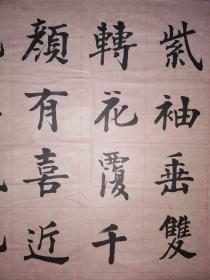 紫袖垂雙
轉花覆千
顏有喜近